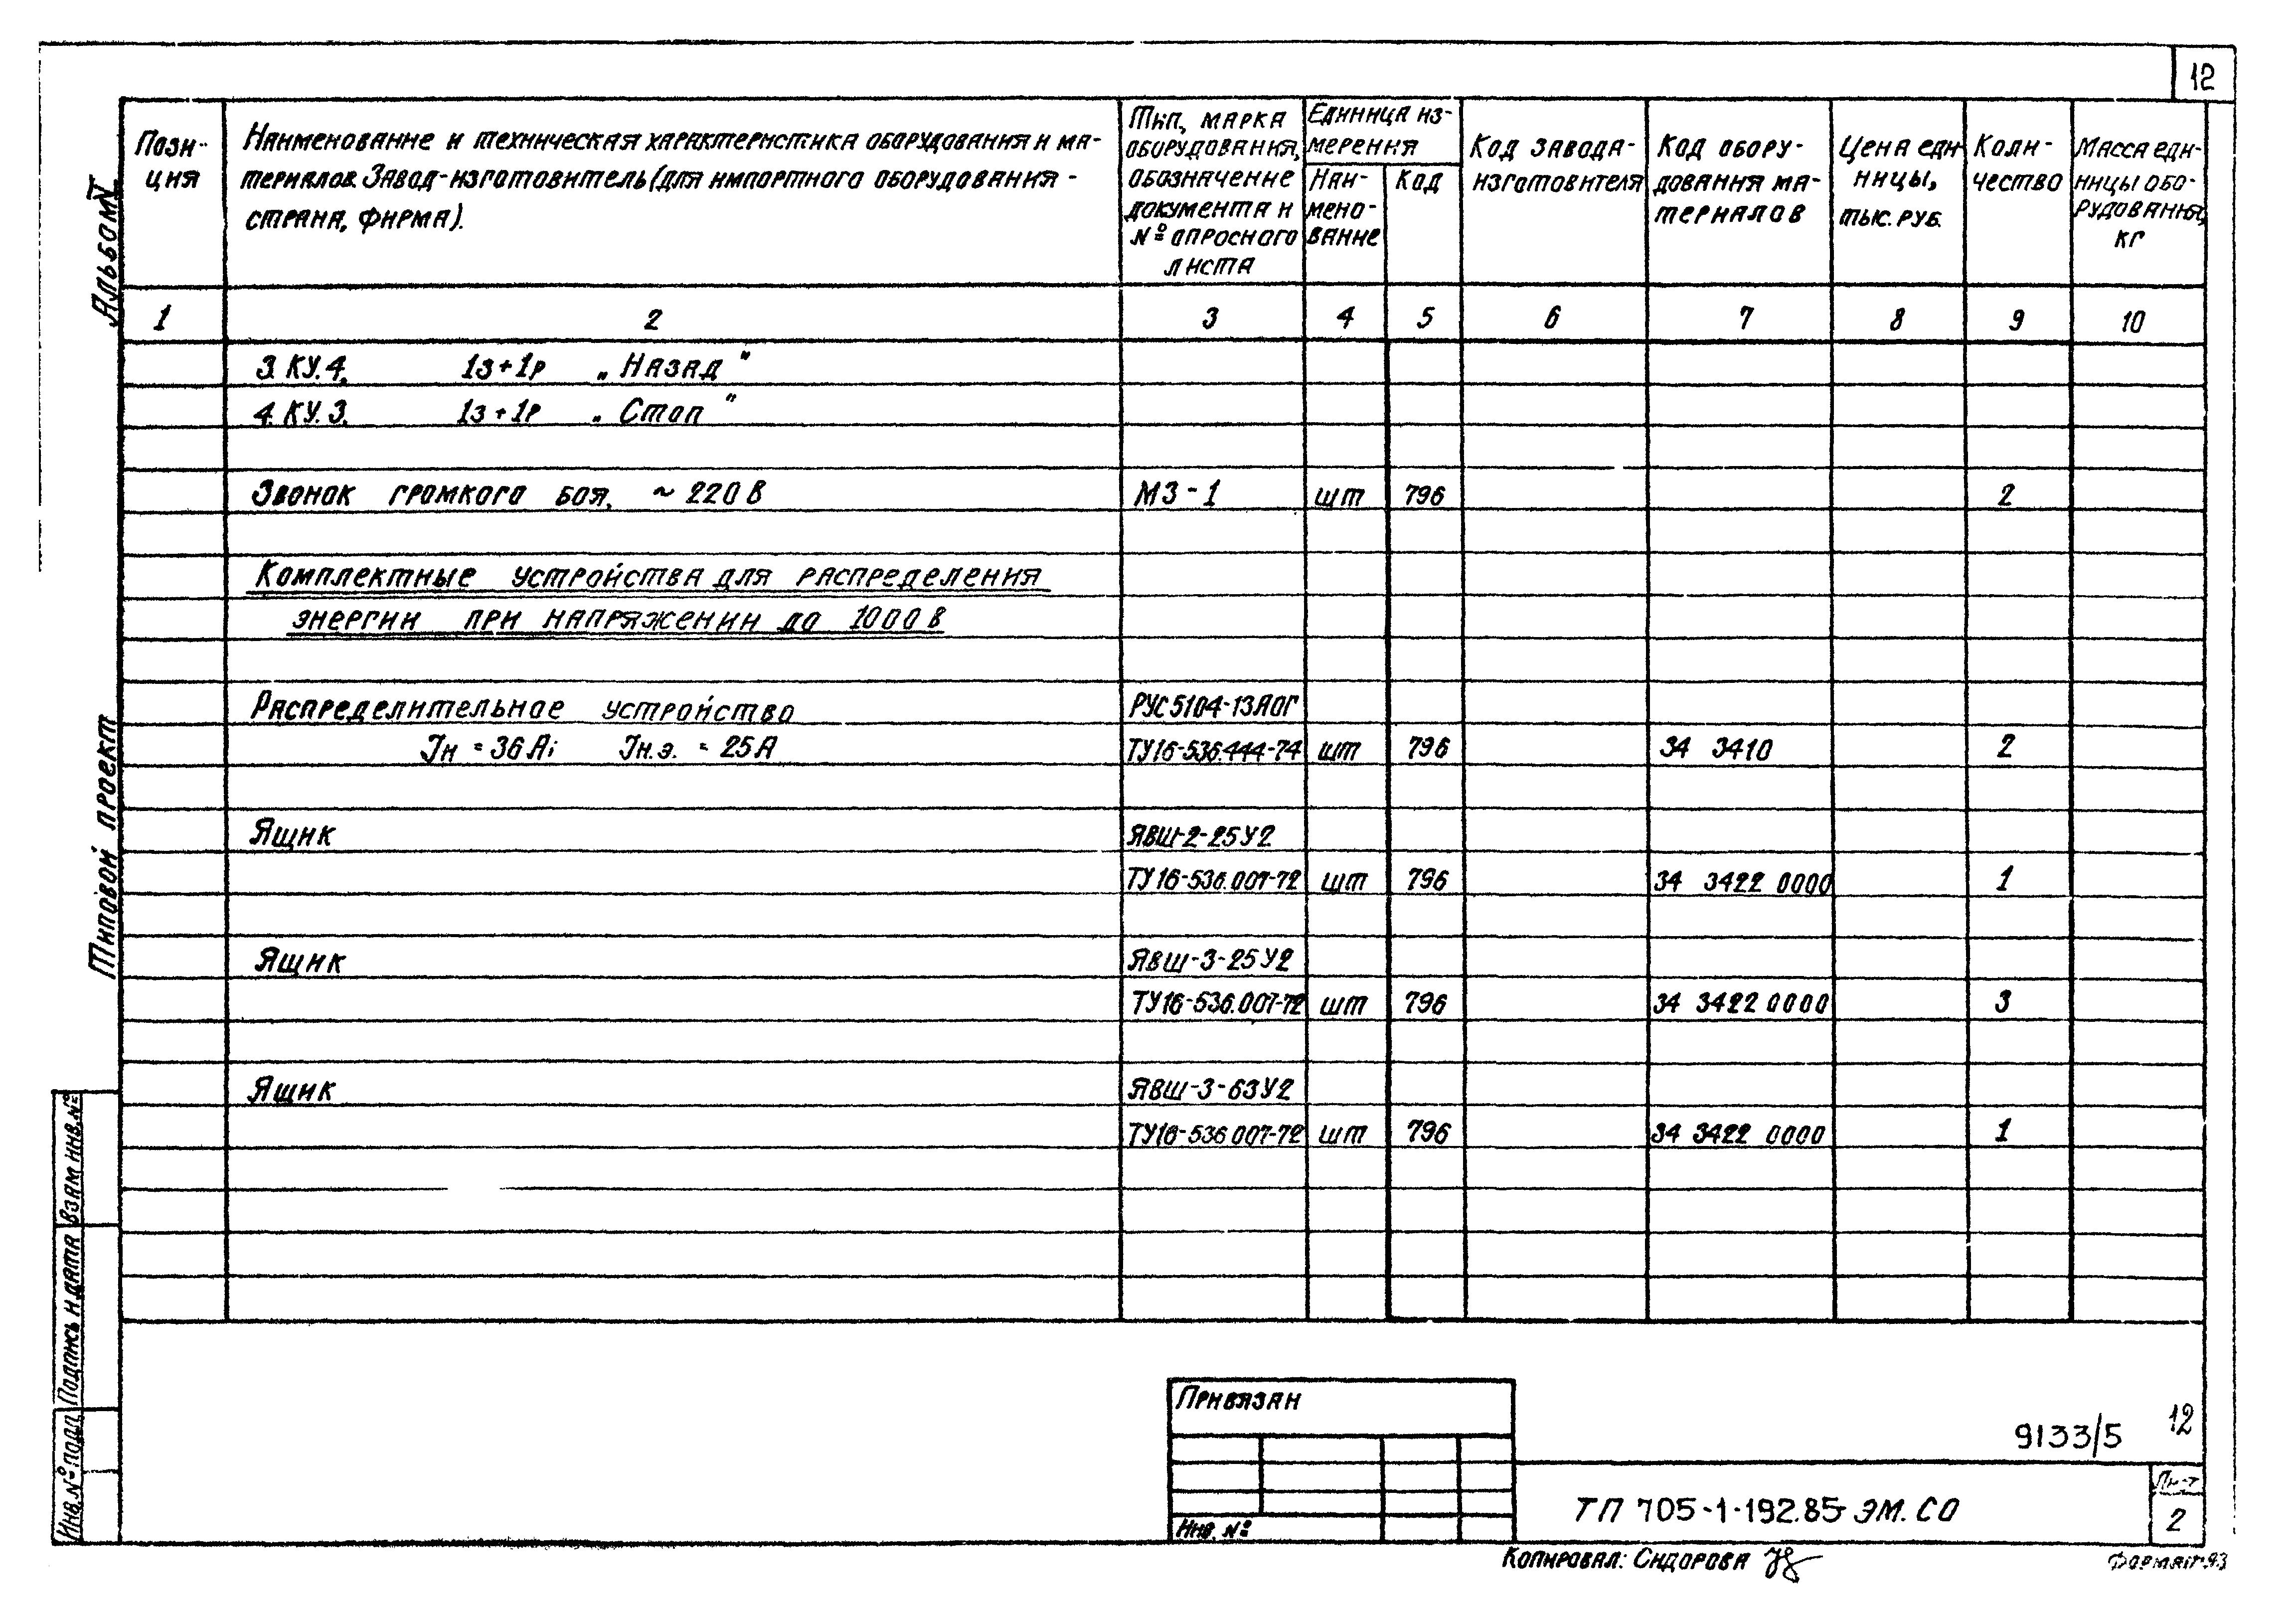 12
Альбом V
Типовой проект
Пози-
ция
Наименование и техническая характеристика оборудования и ма-
териалов. Завод-изготовитель (для импортного оборудования -
страна, фирма).
Тип, марка
оборудования,
обозначение
документа и
№ опросного
листа
Единица из-
мерения
Наи-
мено-
вание
Код
Код завода-
изготовителя
Код обору-
дования ма-
териалов
Цена еди
ницы,
тыс. руб.
Коли-
чество
Масса еди-
ницы обо-
рудования,
кг
1 2 3 4 5 6 7 8 9 10
3. КУ.4. 1з+1р „Назад"
4. КУ.3. 1з+1р „Стоп"
Звонок громкого боя, ~220В МЗ-1 шт 796 2
Комплектные устройства для распределения
энергии при напряжении до 1000В
Распределительное устройство РУС5104-13А0Г
Iн = 36А; Iн.э. = 25А ТУ16-536.444-74 шт 796 34 3410 2
Ящик ЯВШ-2-25У2
ТУ16-536.007-72 шт 796 34 3422 0000 1
Ящик ЯВШ-3-25У2
ТУ16-536.007-72 шт 796 34 3422 0000 3
Ящик ЯВШ-3-63У2
ТУ16-536.007-72 шт 796 34 3422 0000 1
Взам инв.№
Подпись и дата
Инв.№подл
Привязан
Инв. №
9133/5
12
ТП 705-1-192.85-ЭМ.СО
Лист
2
Копировал: Сидорова
Формат А3